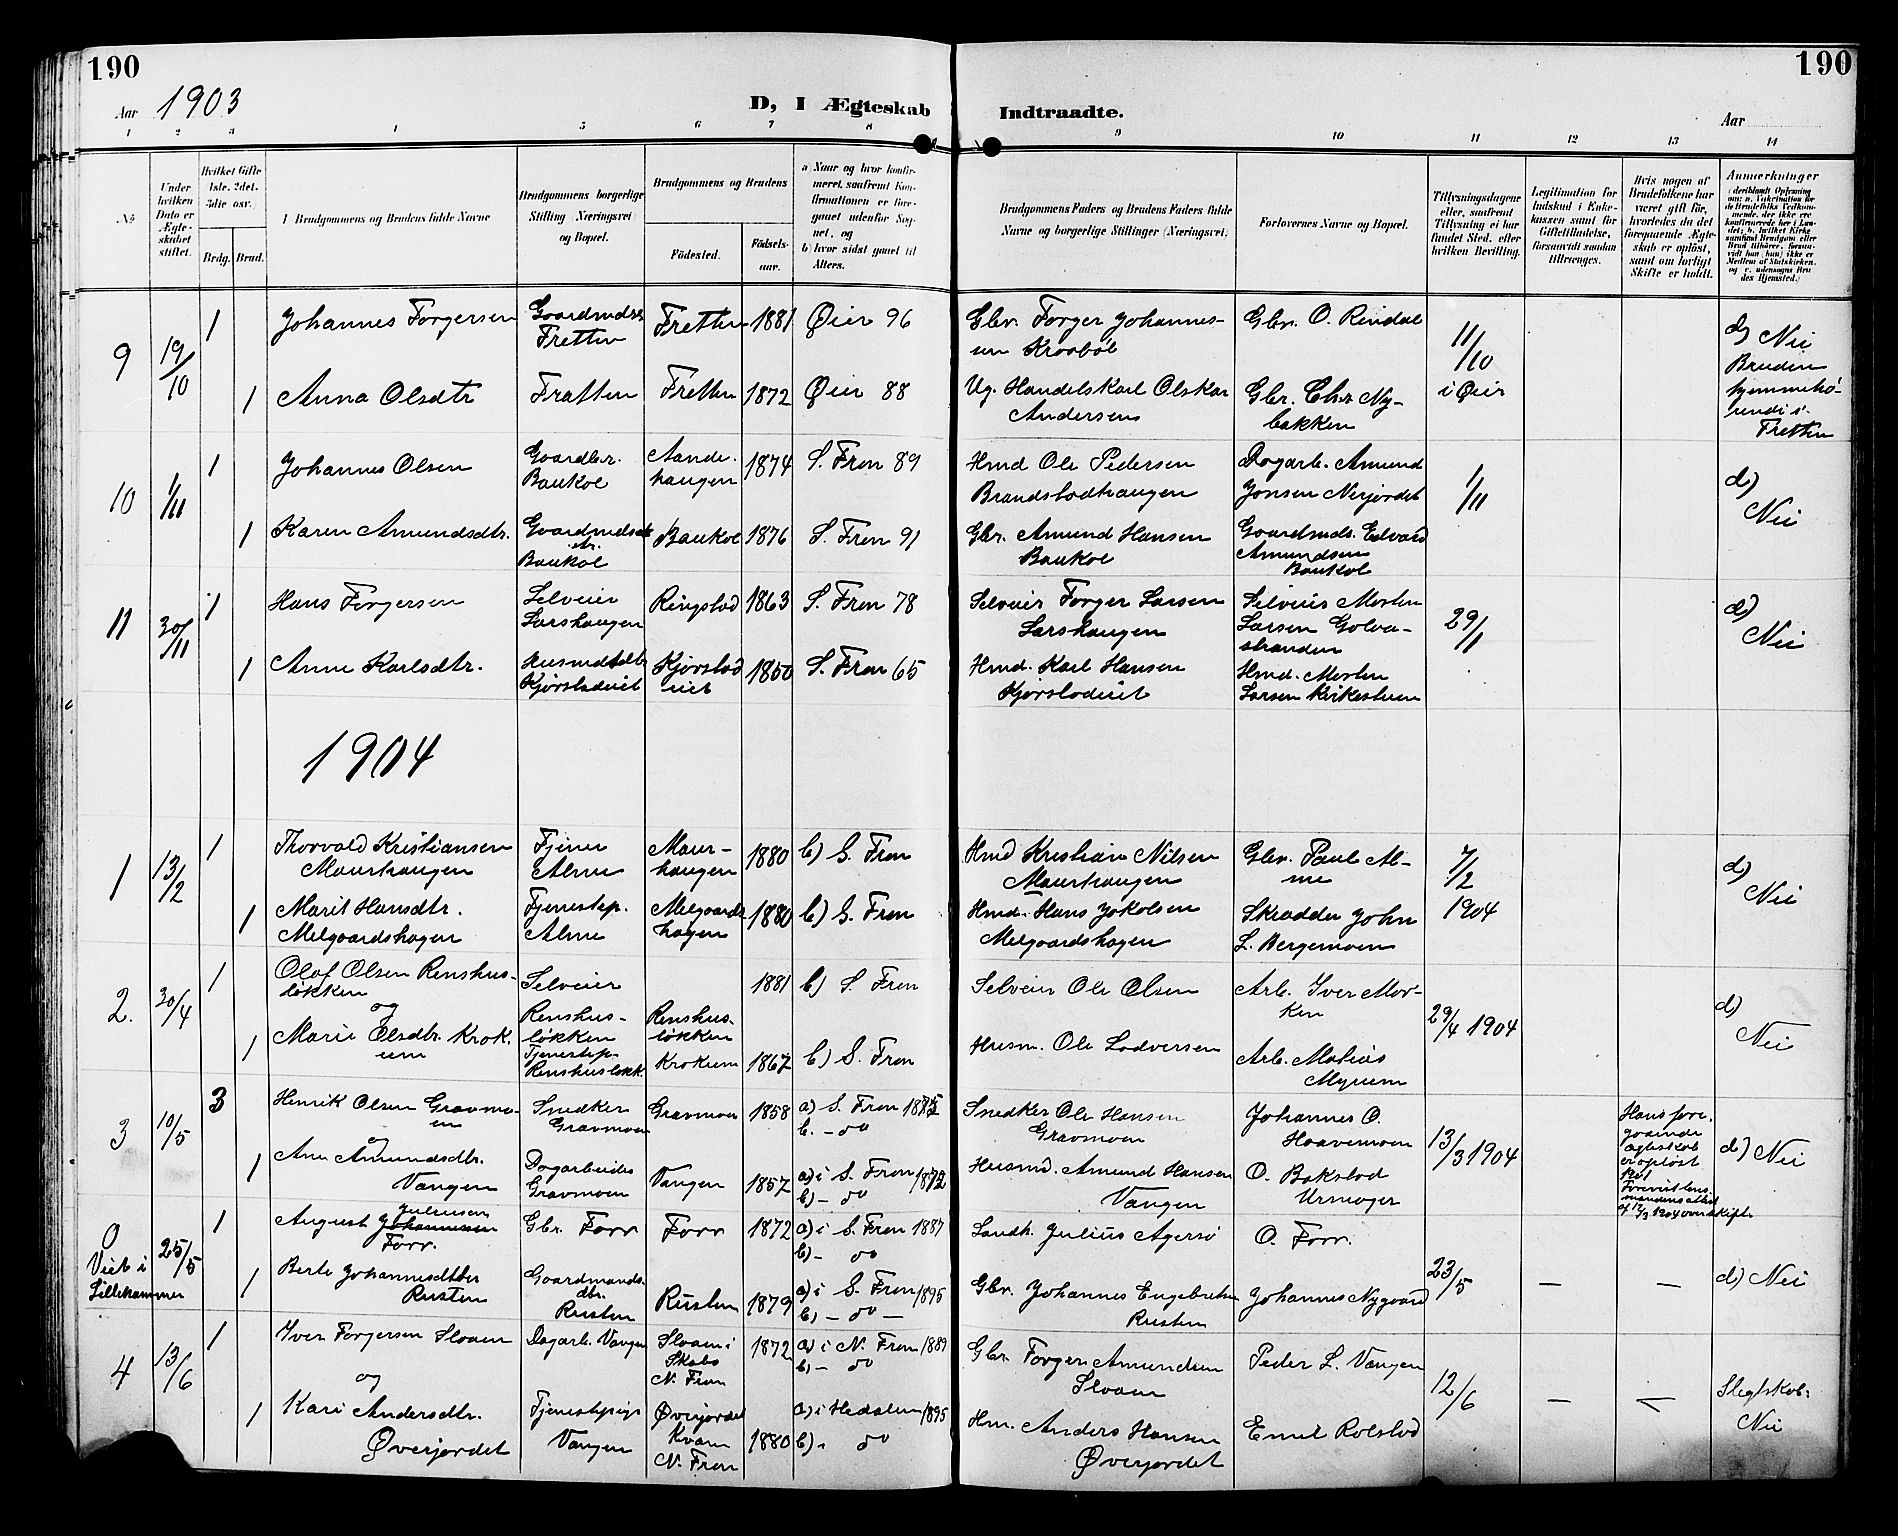 190
190
Aar 1903
D, I Ægteskab Indtraadte.
Aar
1 2 3 4 5 6 7 8 9 10 11 12 13 14
No
Under hvilken Dato er Ægteskabet stiftet.
Hvilket Gifte 1ste, 2det, 3die osv.)
Brdg. Brud.
Brudgommens og Brudens fulde Navne
Brudgommens borgerlige Stilling (Næringsvei) og Bopæl.
Brudgommens og Brudens
Födested.
Födselsaar.
a) Naar og hvor konfirmeret, saafremt Konfirmationen er foregaaet udenfor Sognet, og
b) hvor sidst gaaet til Alters.
Brudgommens Faders og Brudens Faders fulde Navne og borgerlige Stillinger (Næringsvei).
Forlovernes Navne og Bopæl.
Tillysningsdagene eller, saafremt Tillysning ei har fundet Sted, efter hvilken Bevilling.
Legitimation for Indskud i Enkekassen samt for Giftetilladelse, forsaavidt saadan tiltrænges.
Hvis nogen af Brudefolkene har været gift før, hvorledes da det foregaaende Ægteskab er opløst, samt om lovligt Skifte er holdt.
Anmærkninger
9 19/10 1 Johannes Torgersen Gaardmds. Fretten Fretten 1881 Øier 96 Gbr. Torger Johannessen Kraabøl Gbr. O. Rindal 11/10 i Øier d) Nei Bruden hjemmehørende i Fretten
1 Anna Olsdtr Fratten Fretten 1872 Øier 88 Ug. Handelskarl Olskar Andersen Gbr. Chr. Nybakken
10 1/11 1 Johannes Olsen Gaardbr. Baukol Aandehaugen 1874 S. Fron 89 Hmd Ole Pedersen Brandstadhaugen Dagarb. Amund Jonsen Nerjordet 1/11 d) Nei
1 Karen Amundsdtr. Gaardmdsdtr. Baukol Baukol 1876 S. Fron 91 Gbr. Amund Hansen Baukol Gaardmds. Edvard Amundsen Baukol
11 30/11 1 Hans Torgersen Selveier Larshaugen Ringstad 1863 S. Fron 78 Selveier Torger Larsen Larshaugen Selveier Morten Larsen Golvastranden 29/11 d) Nei
1 Anne Karlsdtr. Husmdsdtr. Kjørstadeiet Kjørstadeiet 1850 S. Fron 65 Hmd. Karl Hansen Kjørstadeiet Hmd. Morten Larsen Kirkestuen
1904
1 13/2 1 Thorvald Kristiansen Maurhaugen Tjener Alme Maurhaugen 1880 b) S. Fron Hmd Kristian Nilsen Maurhaugen Gbr. Paul Alme 7/2 1904 d) Nei
1 Marit Hansdtr. Melgaardshagen Tjenestep. Alme Melgaardshagen 1880 b) S. Fron Hmd. Hans Jakobsen Melgaardshagen Skrædder John L. Bergemoen
2. 30/4 1 Olaf Olsen Renshusløkken Selveier Renshusløkken Renshusløkken 1881 b) S. Fron Selveier Ole Olsen Arb. Iver Morken 29/4 1904 d) Nei
og
1 Marie Olsdtr. Krokeum Tjenestep. Renshusløkk. Krokeum 1867 b) S. Fron Husm. Ole Lodversen Arb. Matias Myruem
3 10/5 3 Henrik Olsen Gravmoen Snedker Gravmoen Gravmoen 1858 a) S. Fron b. - do Snedker Ole Hansen Gravmoen Johannes O. Haavemoen 13/3 1904 Hans foregaaende ægteskab er opløst d) Nei
og
1 Ane Amundsdtr. Vangen Dagarbeider Gravmoen Vangen 1857 a) i S. Fron 1872 b) - do Husmd. Amund Hansen Vangen O. Bakstad Urmager
0 Viet i Lillehammer 25/5 1 August Johannesen Juliusen Forr. Gbr. Forr Forr 1872 a) i S. Fron 1887 b) - do Landh. Julius Agersø O. Forr. 23/5 — — d) Nei
1 Berte Johannesdtter Rusten Gaardmandsdtr. Rusten Rusten 1879 a) i S. Fron 1895 b) - do - Gbr. Johannes Engebretsen Rusten Johannes Nygaard
4 13/6 1 Iver Torgersen Slaaen Dagarb. Vangen Slaaen i Skabo N. Fron 1872 a) i N. Fron 1889 b) - do Gbr. Torger Amundsen Slaaen Peder L. Vangen 12/6 — — Slegtskab: Nei
og
1 Kari Andersdtr. Øverjordet Tjenestepige Vangen Øverjordet Kvam N. Fron 1880 a) i Hedalen 1895 b) . do Hm. Anders Hansen Øverjordet Emil Rolstad